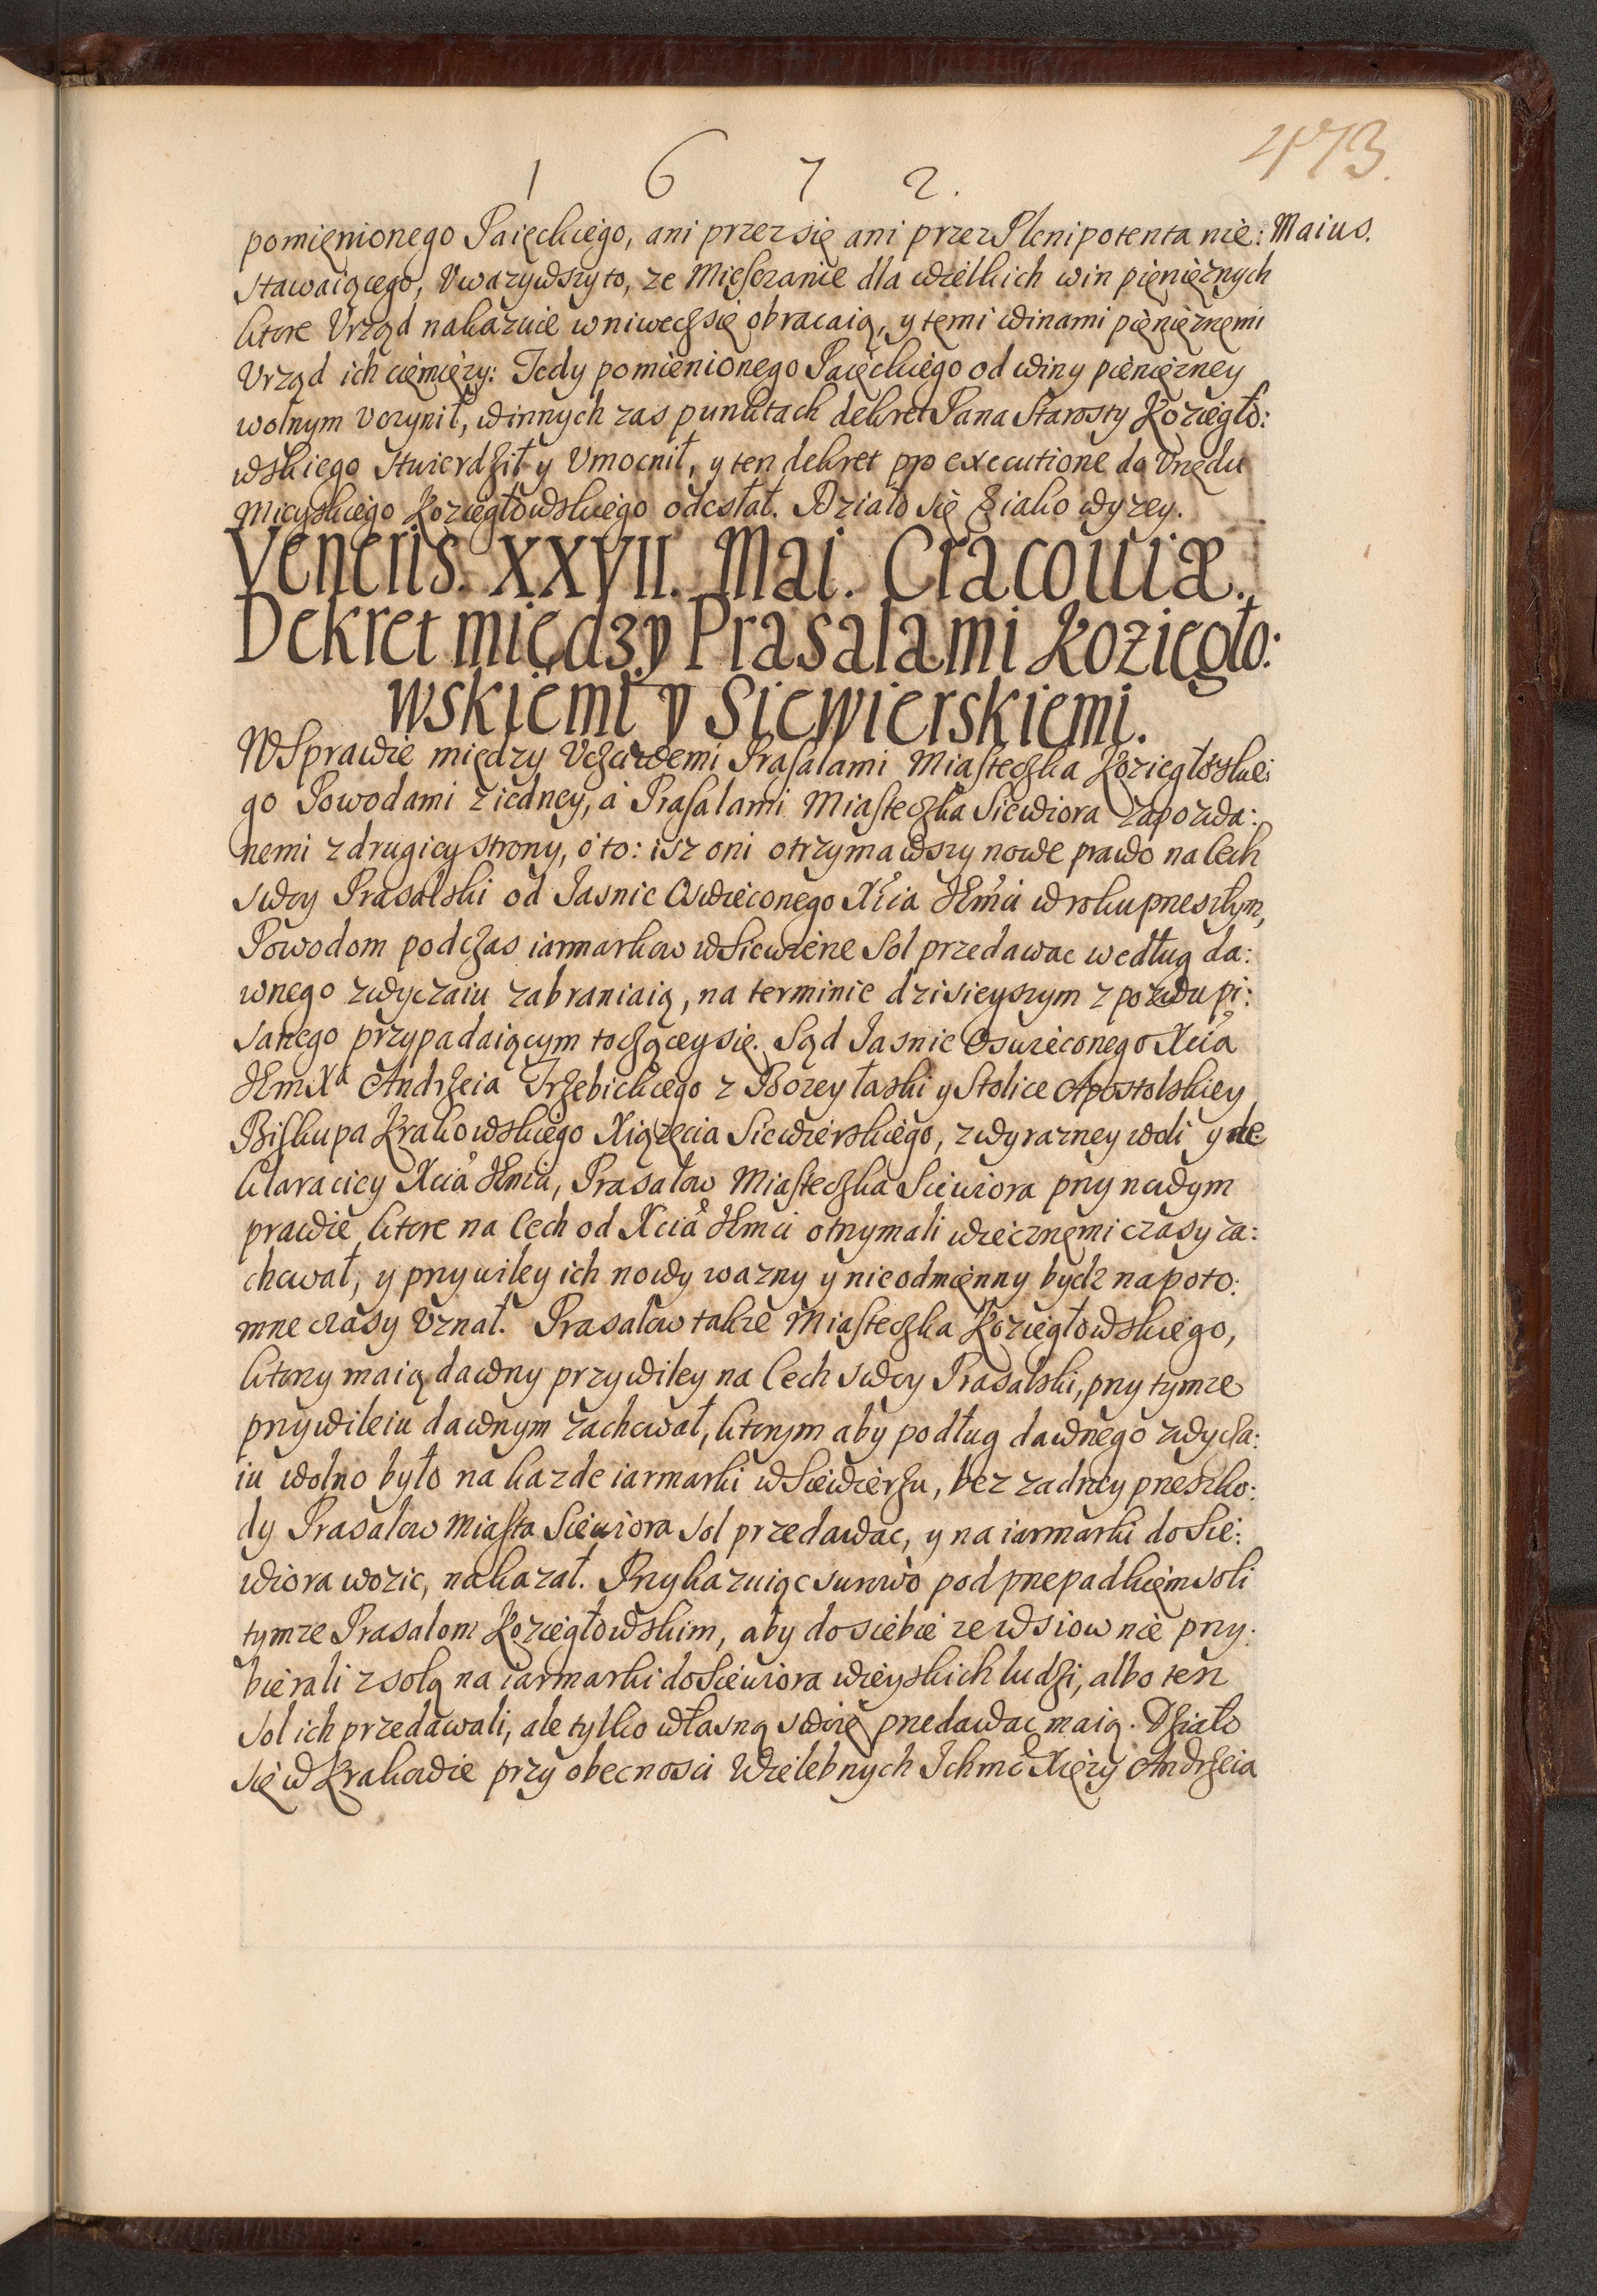 473.
1 6 7 2.
Maius.
pomięnionego Paięckiego, ani przez się ani przez Plenipotenta nie:
stawaiącego, Uwazywszy to, ze Miesczanie dla wielkich win pięnięznych
ktore Urząd nakazuie wniwecz się obracaią, y temi winami pięnięznemi
Urząd ich cięmięzy: Tedy pomienionego Paięckiego od winy pienięzney
wolnym Uczynił, w innych zas punktach dekret Pana Starosty Koziegło:
wskiego Stwierdził y Umocnił, y ten dekret pro executione do Urzędu
Mieyskiego Koziegłowskiego odesłał. Działo się iako wyzey.
Veneris. XXVII. Mai. Cracouiæ.
Dekret między Prasalami Koziegło:
wskiemi y Siewierskiemi.
W Sprawie między Uczciwemi Prasalami Miasteczka Koziegłowskie:
go Powodami z iedney, a Prasalami Miasteczka Siewiora zapozwa:
nemi z drugiey strony, o to: isz oni otrzymawszy nowe prawo na Cech
swoy Prasalski od Jasnie Oswieconego Xcia JEmci w roku przeszłym,
Powodom podczas iarmarkow w Siewierze Sol przedawac według da:
wnego zwyczaiu zabraniaią, na terminie dzisieyszym z pozwu pi:
sanego przypadaiącym toczącey się. Sąd Jasnie Oswieconego Xcia
JEmXa Andrzeia Trzebickiego z Bozey łaski y Stolice Apostolskiey
Biskupa Krakowskiego Xiązęcia Siewierskiego, z wyrazney woli y de
klaraciey Xcia JEmci, Prasałow Miasteczka Siewiora przy nowym
prawie ktore na Cech od Xcia JEmci otrzymali wiecznemi czasy za:
chował, y przywiley ich nowy wazny y nieodmięnny bydz na poto:
mne czasy Uznał. Prasałow takze Miasteczka Koziegłowskiego,
ktorzy maią dawny przywiley na Cech swoy Prasalski, przy tymze
przywileiu dawnym zachował, ktorym aby podług dawnego zwycza:
iu wolno było na kazde iarmarki w Siewierzu, bez zadney przeszko:
dy Prasalow Miasta Siewiora sol przedawac, y na iarmarki do Sie:
wiora wozic, nakazał. Przykazuiąc surowo pod przepadkięm soli
tymze Prasalom Koziegłowskim, aby do siebie ze wsiow nie przy:
bierali z solą na iarmarki do Siewiora wieyskich ludzi, albo tesz
sol ich przedawali, ale tylko własną swoię przedawac maią. Działo
się w Krakowie przy obecnosci Wielebnych Ichmć Xięzy Andrzeia